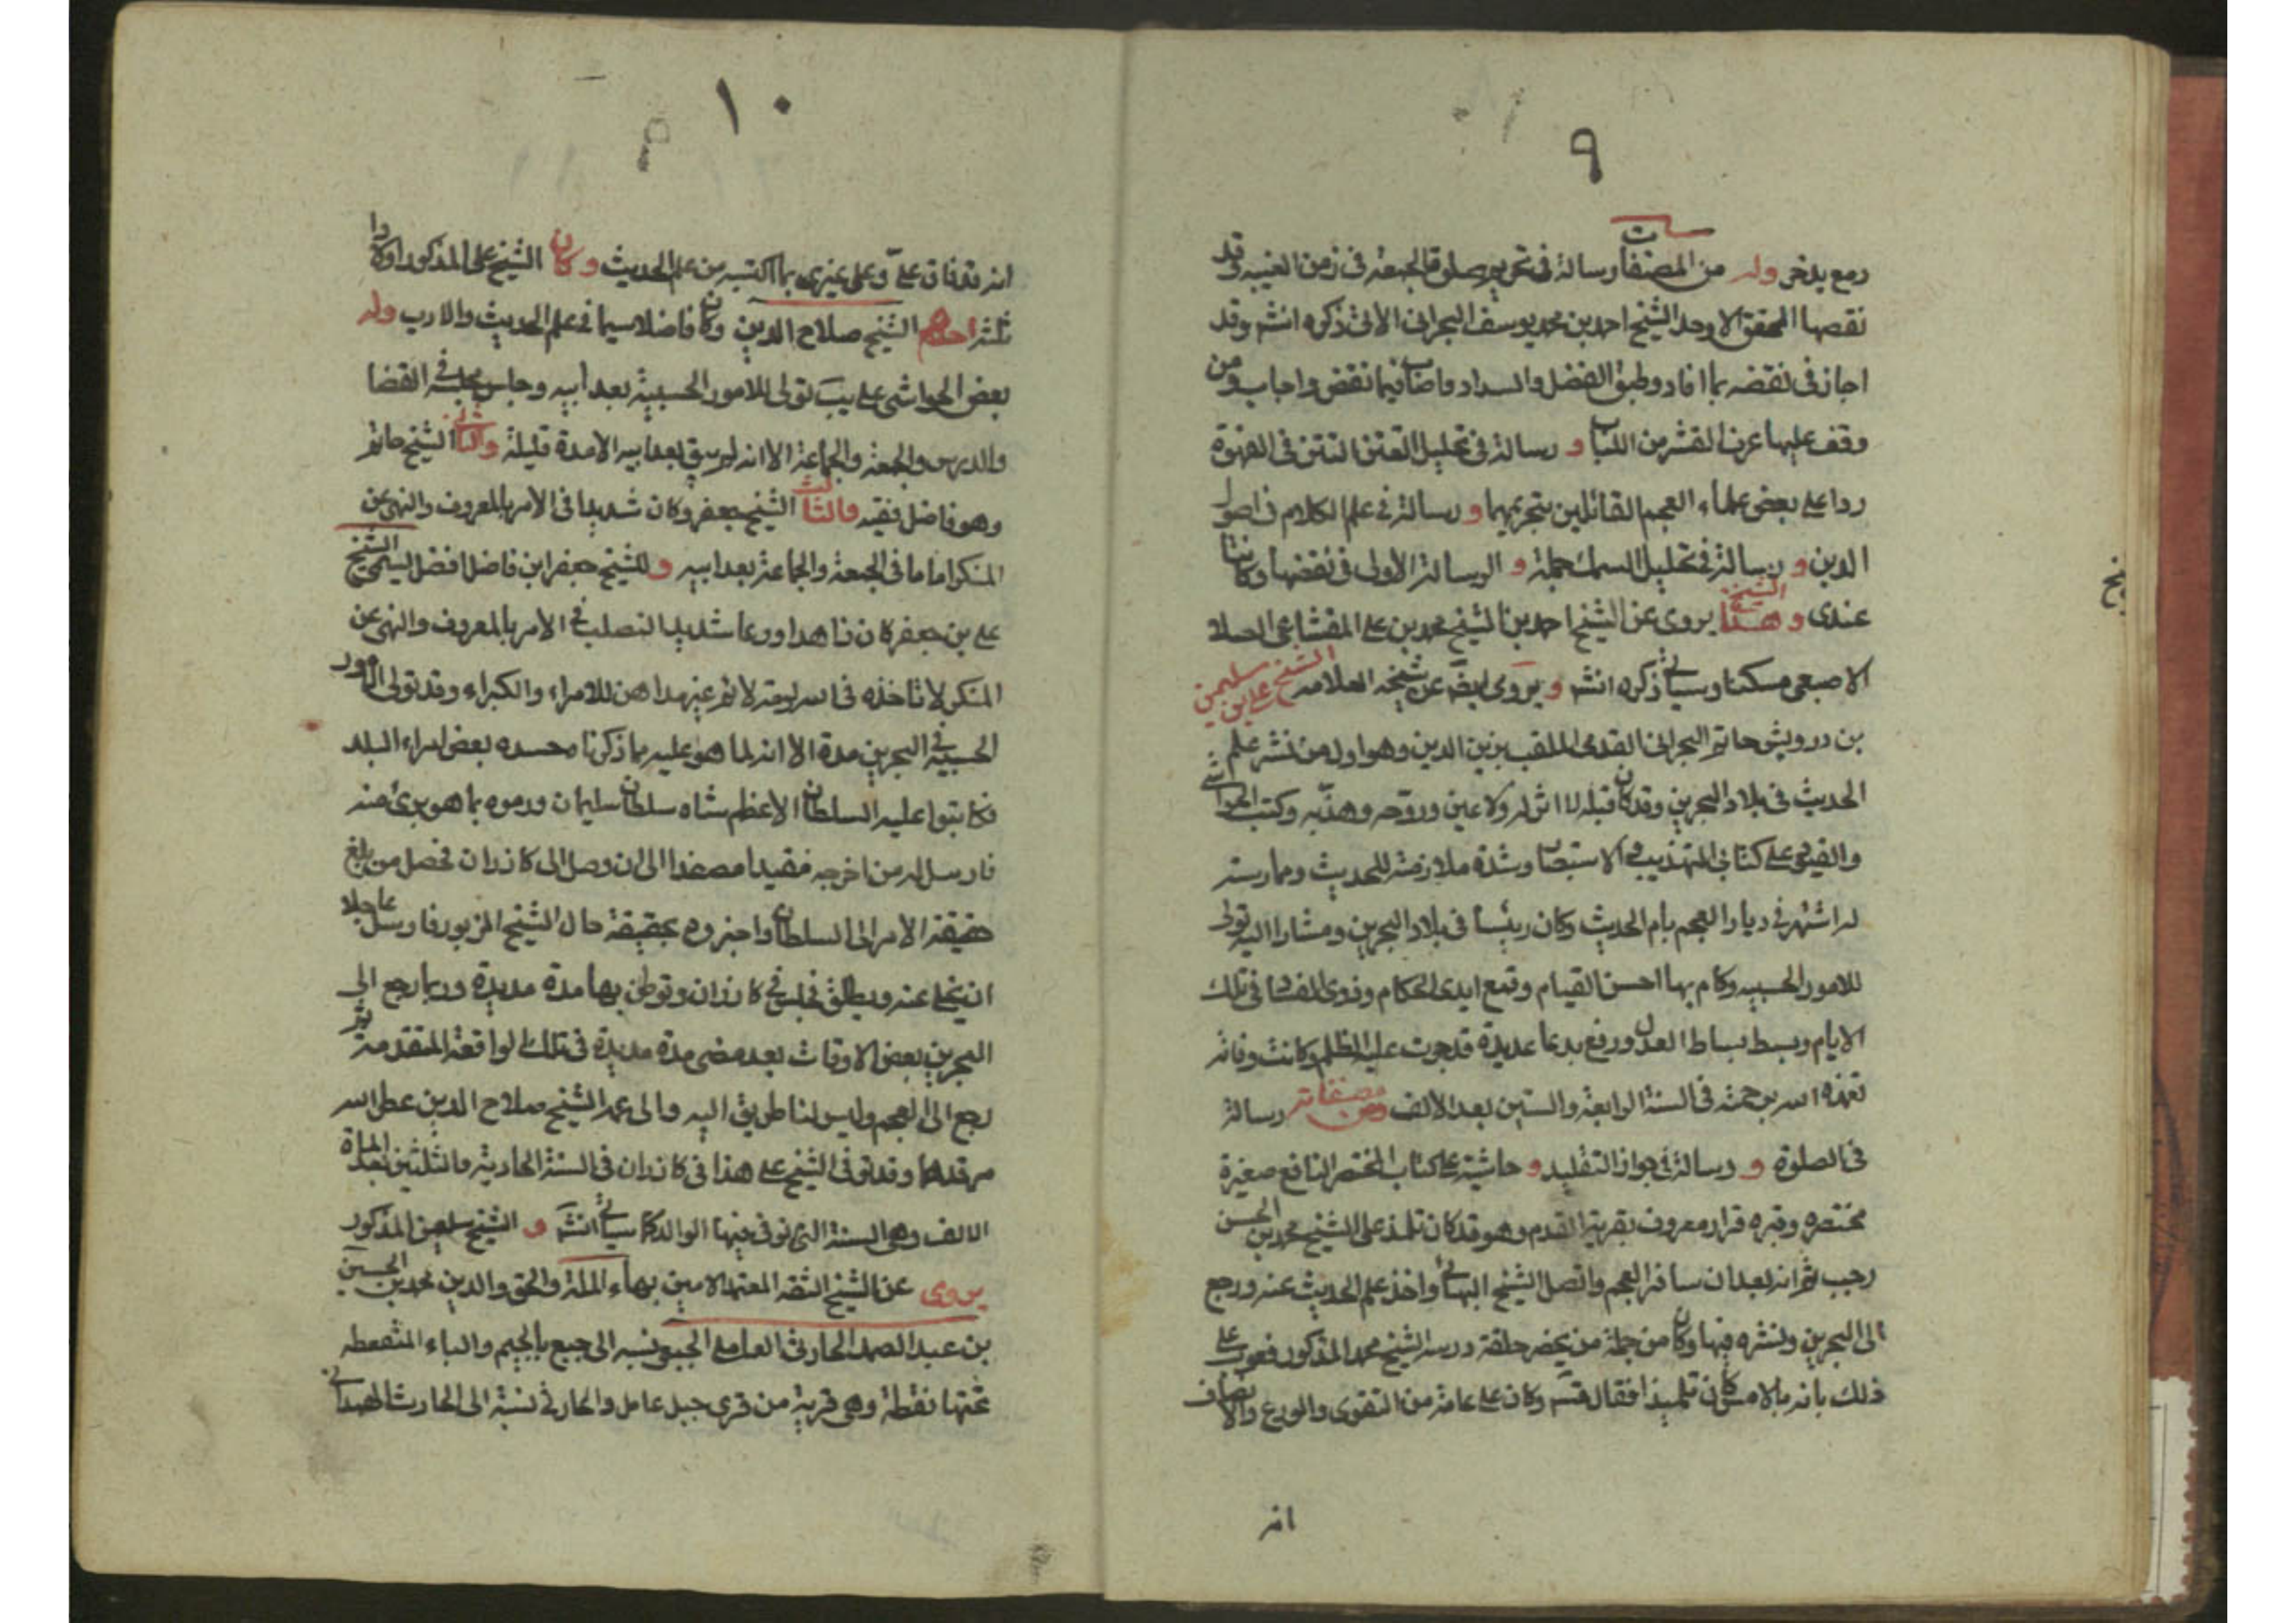 ٩
دمع يذخر وله من المصنفات رسالة في تحريم صلوة الجمعة في زمن الغيبه وقد
نقضها المحقق الاوحد الشيخ احمد بن محمد يوسف البحراني الاتي ذكره انشه وقد
اجاز في نقضه بما افاد وطبق الفضل والسداد واصاب فيما نقض واجاب ومن
وقف عليها عرف القشر من اللباب و رسالة في تحليل التتن التتن في القهوة
ردا على بعض علماء العجم القائلين بتحريمهما و رسالة في علم الكلام في اصول
الدين و رسالة في تحليل السمك جملة و الرسالة الاولى في نقضها وكانتا
عندى و هذا الشيخ يروى عن الشيخ احمد بن الشيخ محمد بن علي المقشاعي اصلا
الاصبعي مسكنا وسياتي ذكره انشه و يروى ايضَ عن شيخه العلامه الشيخ علي بن سليمن
بن درويش حاتم البحراني القدمى الملقب بزين الدين وهو اول من نشر علم
الحديث في بلاد البحرين وقد كان قبله لا اثر له ولا عين وروّجه وهذّبه وكتب الحواشي
والقيود على كتابي التهذيب والاستبصار وشدة ملازمته للحديث وممارسته
له اشتهر في ديار العجم بام الحديث وكان رئيسا في بلاد البحرين ومشارا اليه تولى
للامور الحسبيه وكام بها احسن القيام وقمع ايدى الحكام وذوى الفساد في تلك
الايام وبسط بساط العدل ورفع بدعا عديدة قد جرت عليها الظلم وكانت وفاته
تغمده الله برحمته في السنة الرابعة والستين بعد الالف ومن مصنفاته رسالة
في الصلوة و رسالة في جواز التقليد و حاشية على كتاب المختصر النافع صغيرة
مختصره وقبره قرار معروف بقرية القدم وهو قد كان تلمذ على الشيخ محمد بن الحسن
رجب ثم انه بعد ان سافر العجم واتصل الشيخ البهائي واخذ علم الحديث عنه ورجع
الى البحرين ونشره فيها وكان من جملة من يحضر حلقة درسه الشيخ محمد المذكور فعوتب على
ذلك بانه بالامس كان تلميذا فقال قسّه وكان على عامة من التقوى والورع والانصاف
انه
١٠
انه قد فاق علىّ وعلى غيرى بما اكتسبه من علم الحديث وكان الشيخ على المذكور اولادا
ثلثة احدهم الشيخ صلاح الدين وكان فاضلا سيما في علم الحديث والادب وله
بعض الحواشى تولى للامور الحسبية بعد ابيه وجلس مجلسه في القضا
والدرس والجمعة والجماعة الا انه لم يبق بعد ابيه الا مدة قليلة والثاني الشيخ حاتم
وهو فاضل فقيه والثالث الشيخ جعفر وكان شديدا في الامر بالمعروف والنهى عن
المنكر اماما في الجمعة والجماعة بعد ابيه و للشيخ جعفر ابن فاضل افضل ليسمى الشيخ
علي بن جعفر كان زاهدا ورعا شديد التصلب في الامر بالمعروف والنهى عن
المنكر لا تاخذه في الله لومة لائم غير مداهن للامراء والكبراء وقد تولى الامور
الحسبيه في البحرين مدة الا انه لما هو عليه بما ذكرنا محسده بعض امراء البلد
فكاتبوا عليه السلطان الاعظم شاه سلطان سليمان ورموه بما هو برئ منه
فارسل له من اخرجه مقيدا مصفدا الى ان وصل الى كازران فحصل من بلغ
حقيقة الامر الى السلطان واخبروه بحقيقة حال الشيخ المزبور فارسل عاجلا
ان يخلى عنه ويطلق فجلس في كازران وتوطن بها مدة مديدة وربما رجع الى
البحرين بعض الاوقات بعد مضى مدة مديدة في تلك الواقعة المتقدمة ثم
رجع الى العجم وليس لنا طريق اليه والى عمه الشيخ صلاح الدين عطر الله
مرقدهما وقد توفى الشيخ على هذا في كازران في السنة الحادية والثلثين بعد الماة
الالف وهى السنة التى توفى فيها الوالد كما سياتي انشه و الشيخ سليمن المذكور
يروى عن الشيخ الثقة المعتمد الامين بهاء الملة والحق والدين محمد بن الحسين
بن عبد الصمد الحارثى العاملى الجبعى نسبه الى جبع بالجيم والباء المنقطه
تحتها نقطة وهى قرية من قرى جبل عامل والحارثى نسبة الى الحارث الهمداني